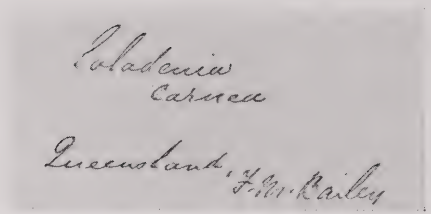 Caladenia
carnea
Queensland, F. M. Bailey